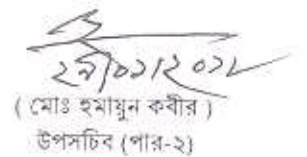 ২৯/০১/২০১৮
( মোঃ হুমায়ুন কবীর )
উপসচিব (পার-২)